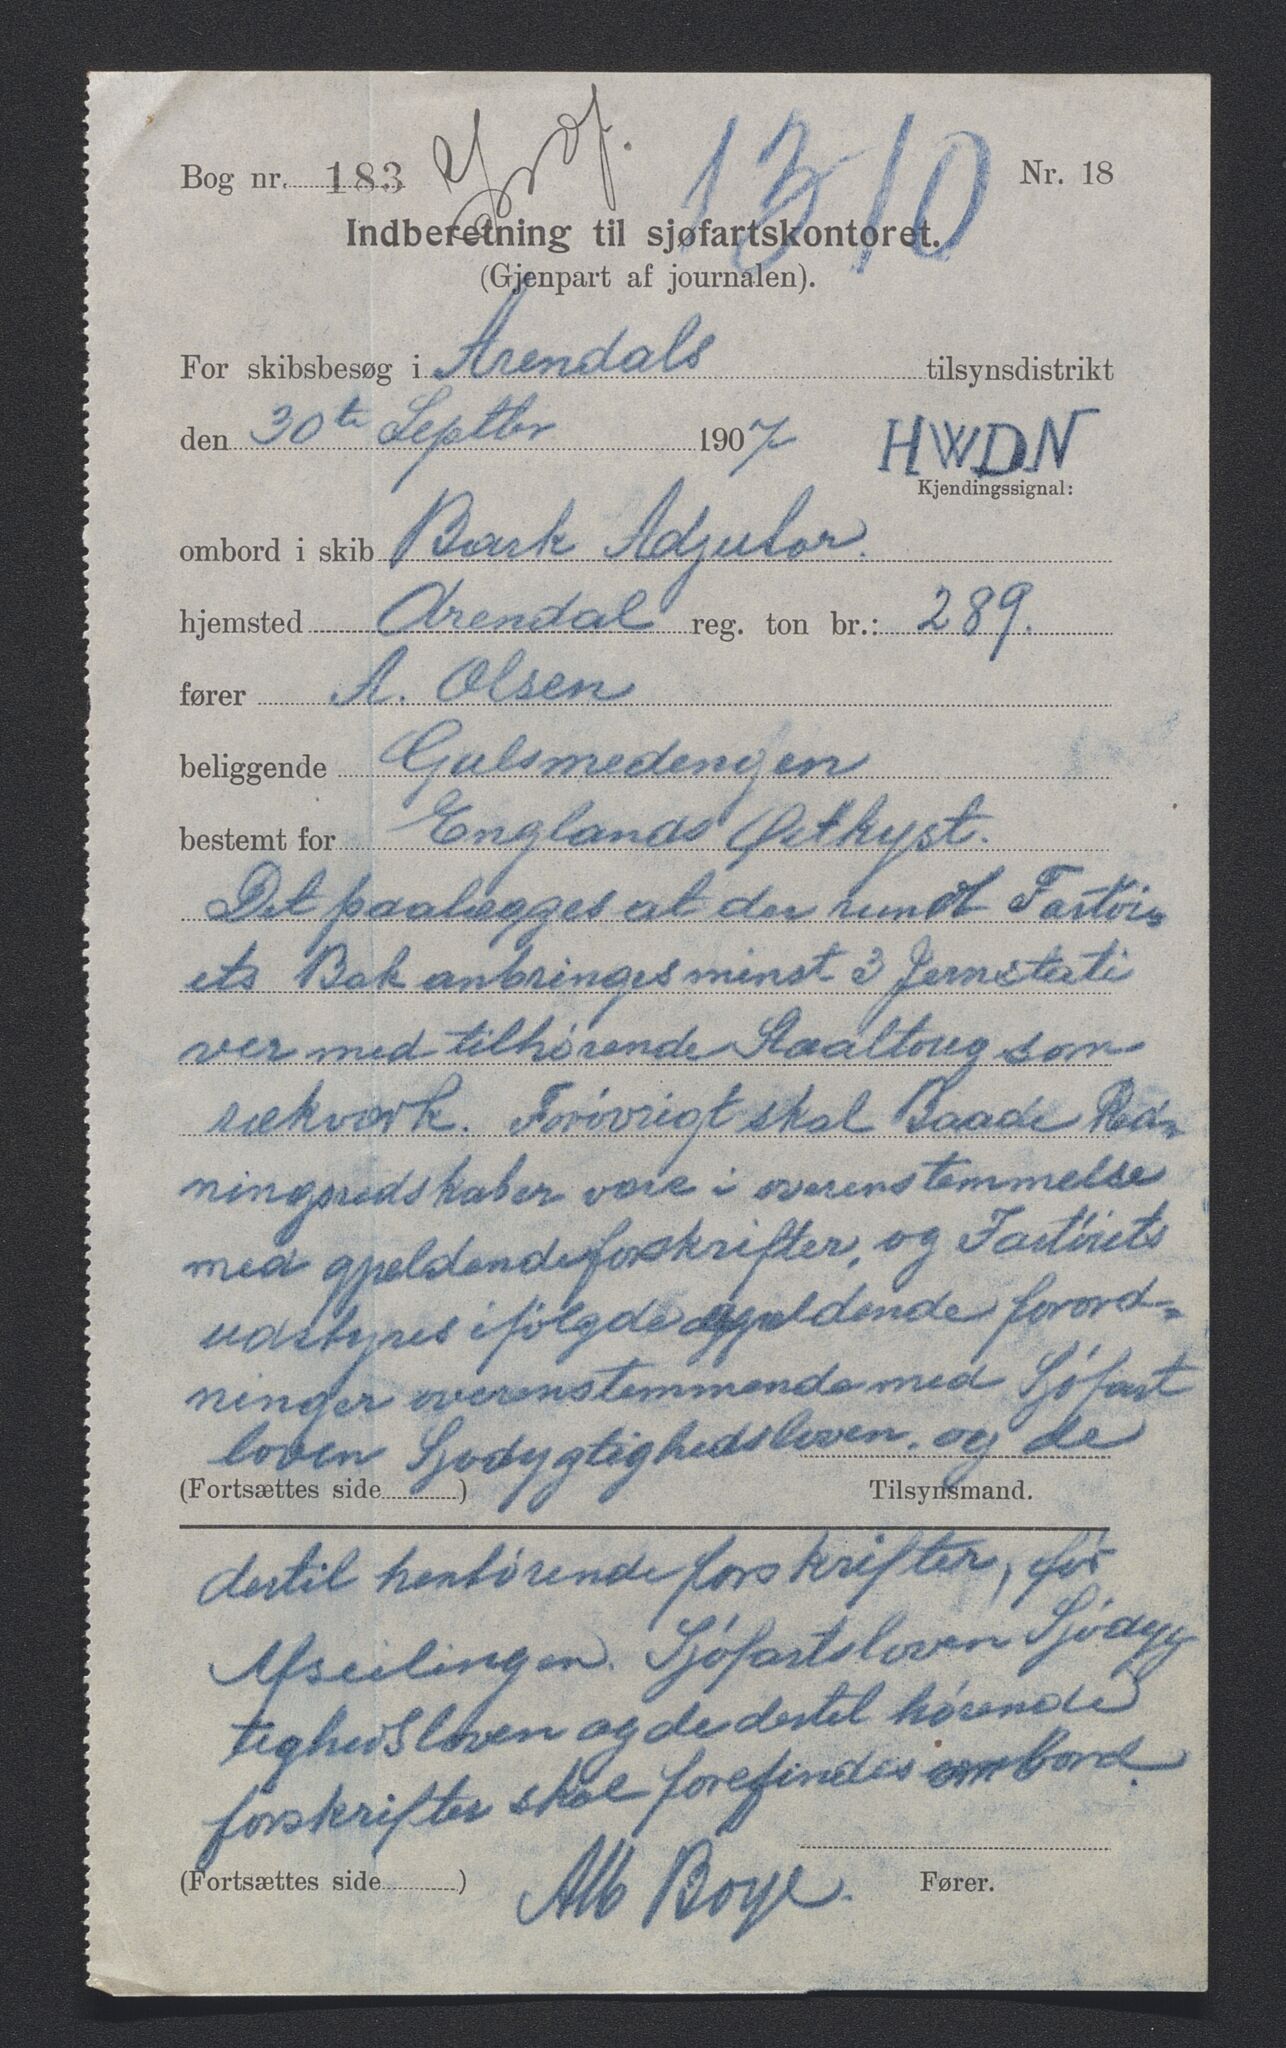 Bog nr. 183 1310 Nr. 18
Indberetning til sjøfartskontoret.
(Gjenpart af journalen).
For skibsbesøg i Arendals tilsynsdistrikt
den 30te Septbr 1907 HWDN
Kjendingssignal:
ombord i skib Bark Adjutor.
hjemsted Arendal reg. ton br.: 289.
fører A. Olsen
beliggende Gulsmedengen
bestemt for Englands Østkyst.
Det paalægges at der rundt Fartøi-
ets Bak anbringes minst 3 Jernstati
ver med tilhørende Staaltoug som
rækværk. Forøvrigt skal Baade Red-
ningsredskaber være i overenstemmelse
med gjeldende forskrifter, og Fartøiets
udstyres ifølge de gjeldende forord-
ninger overenstemmende med Sjøfart
loven Sjødygtighedsloven. og de
(Fortsættes side ) Tilsynsmand.
dertil henhørende forskrifter, før
Afseilingen. Sjøfartsloven Sjødyg
tighedsloven og de dertil hørende
forskrifter skal forefindes ombord.
(Fortsættes side ) Alb Boye. Fører.